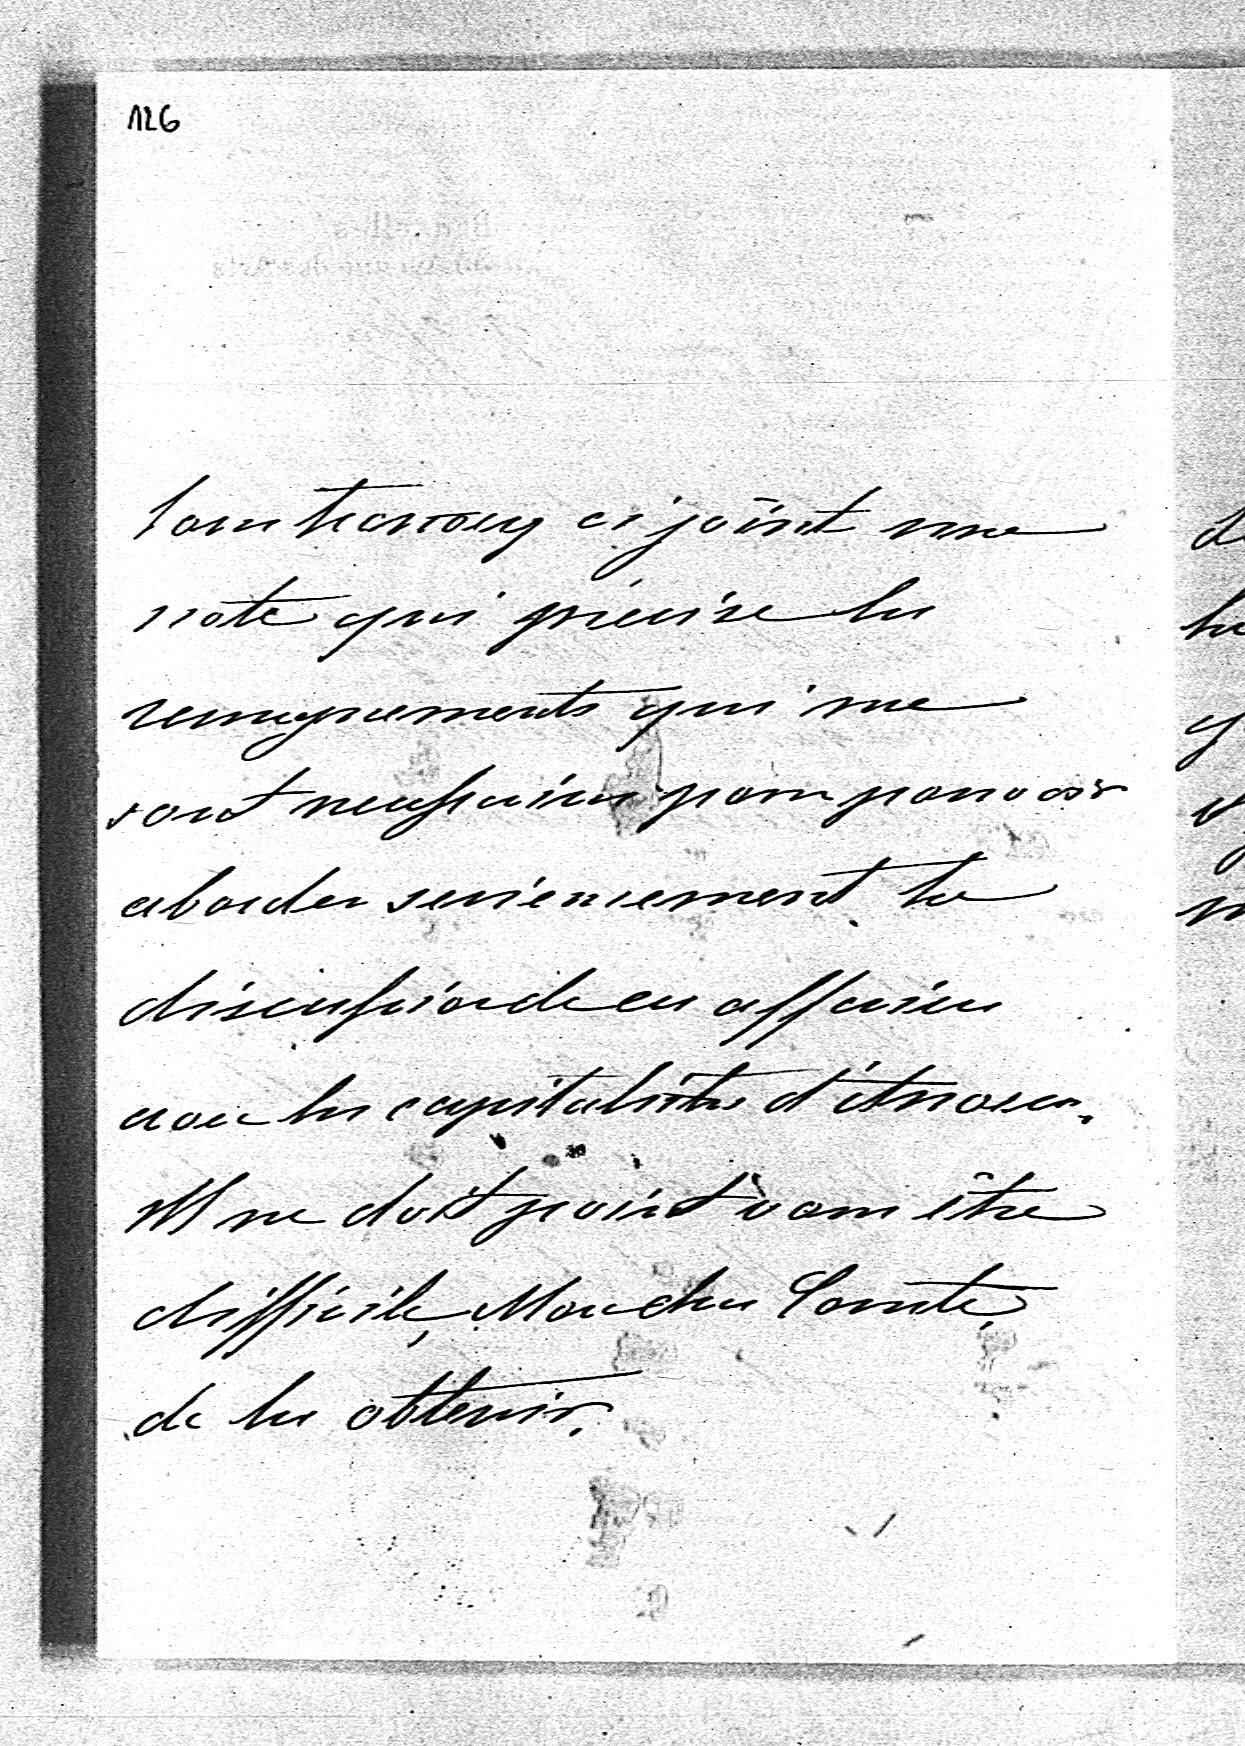 126
Vous trouverez ci joint une
note qui précise les
renseignements qui me
sont necessaires pour pouvoir
aborder serieusement la
discussion de ces affaires
avec les capitalistes
Il ne doit point vous être
difficile, Mon cher Comte,
de les obtenir.